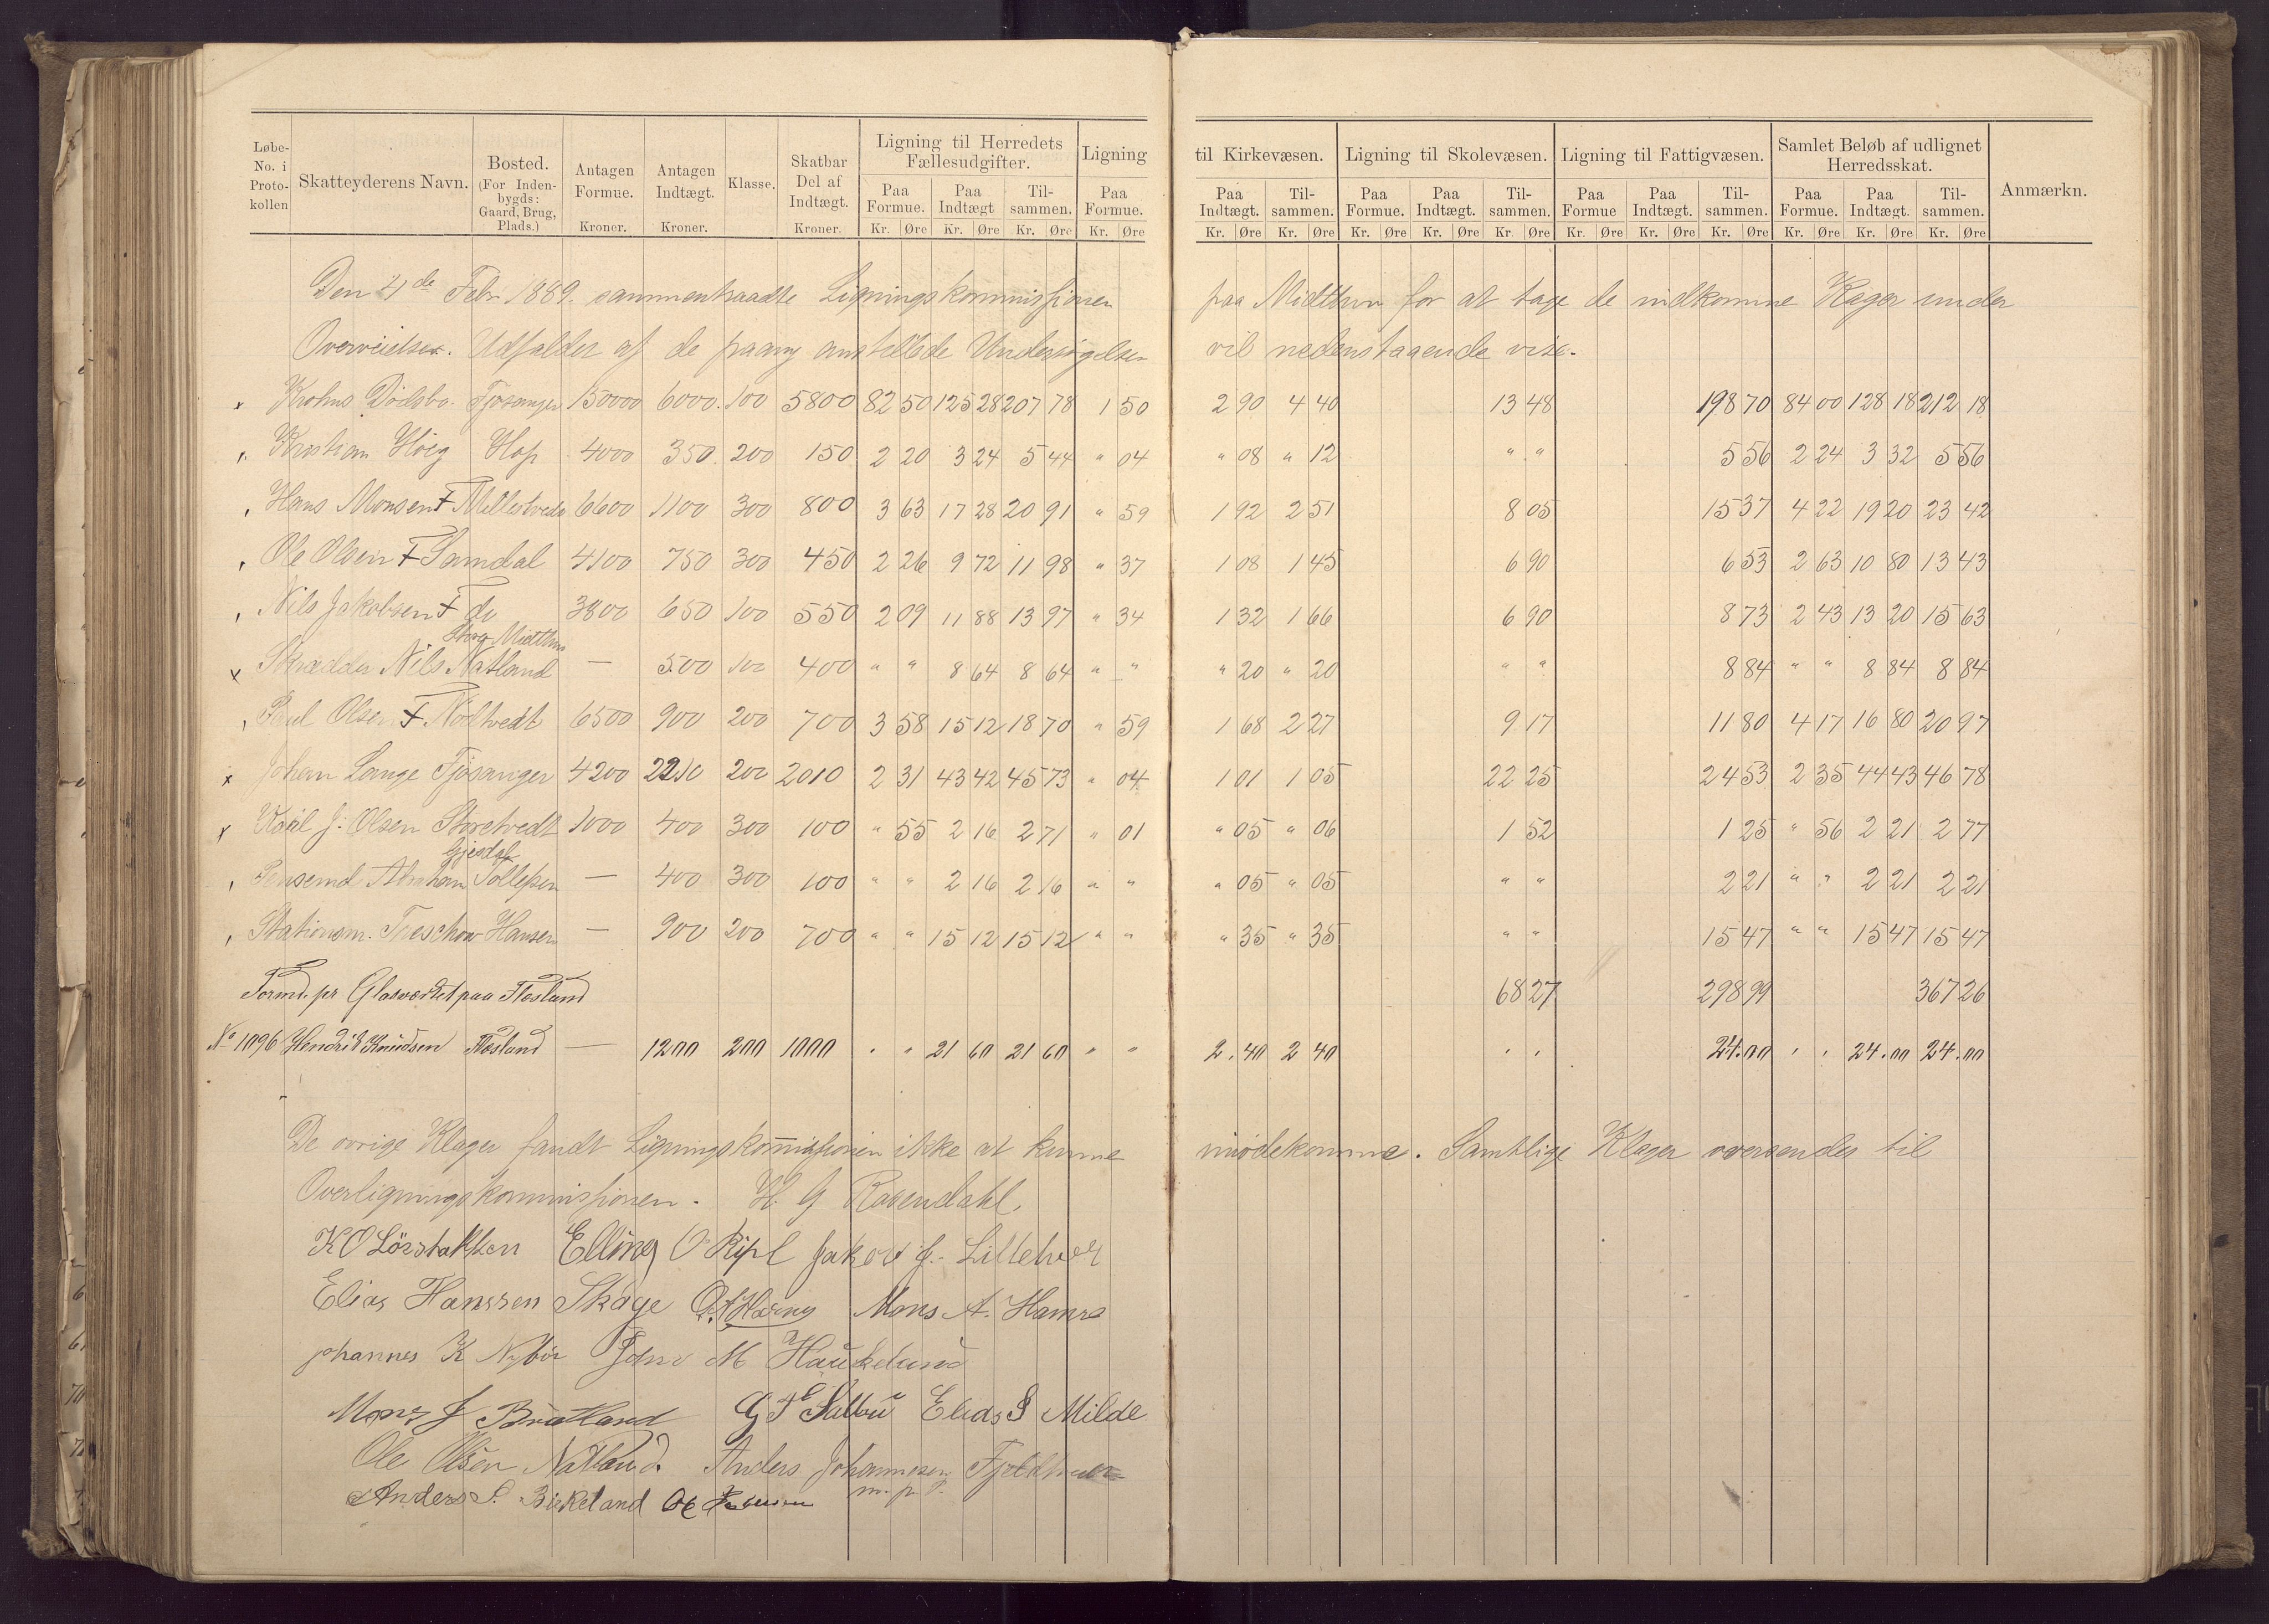 Løbe-No. i Protokollen | Skatteyderens Navn. | Bosted. (For Indenbygds: Gaard, Brug, Plads.) | Antagen Formue. Kroner. | Antagen Indtægt. Kroner. | Klasse. | Skatbar Del af Indtægt. Kroner. | Ligning til Herredets Fællesudgifter. | Ligning til Kirkevæsen. | Ligning til Skolevæsen. | Ligning til Fattigvæsen. | Samlet Beløb af udlignet Herredsskat. | Anmærkn.
Paa Formue. | Paa Indtægt | Tilsammen. | Paa Formue. | Paa Indtægt. | Tilsammen. | Paa Formue. | Paa Indtægt. | Tilsammen. | Paa Formue | Paa Indtægt. | Tilsammen. | Paa Formue. | Paa Indtægt. | Tilsammen.
Kr. Øre Kr. Øre Kr. Øre Kr. Øre Kr. Øre Kr. Øre Kr. Øre Kr. Øre Kr. Øre Kr. Øre Kr. Øre Kr. Øre Kr. Øre Kr. Øre Kr. Øre
Den 4de Febr 1889. sammentraadte Ligningskommissionen paa Midthun for at tage de indkomne Kager under
Overveielse. Udfaldet af de paany anstillede Undersøgelser vil nedenstaaende vise.
x Krohns Dødsbo. Fjøsanger 150000 6000. 100 5800 82 50 125 28 207 78 1 50 2 90 4 40 13 48 198 70 84 00 128 18 212 18
Kristian Høeg Hop 4000 350. 200 150 2 20 3 24 5 44 " 04 " 08 " 12 " " 5 56 2 24 3 32 5 56
Hans Monsen F 6600 1100 300 800 3 63 17 28 20 91 " 59 1 92 2 51 8 05 15 37 4 22 19 20 23 42
Ole Olsen F Samdal 4100 750 300 450 2 26 9 72 11 98 " 37 1 08 1 45 6 90 6 53 2 63 10 80 13 43
Nils Jakobsen F do 3800 650 100 550 2 09 11 88 13 97 " 34 1 32 1 66 6 90 8 73 2 43 13 20 15 63
Midthun
x Skrædder Nils Natland — 500 100 400 " " 8 64 8 64 " " " 20 " 20 " " 8 84 " " 8 84 8 84
Paul Olsen F Nøttvedt 6500 900 200 700 3 58 15 12 18 70 " 59 1 68 2 27 9 17 11 80 4 17 16 80 20 97
x Johan Lange Fjøsanger 4200 2210 200 2010 2 31 43 42 45 73 " 04 1 01 1 05 22 25 24 53 2 35 44 43 46 78
x J. Olsen Storetvedt 1000 400 300 100 " 55 2 16 2 71 " 01 " 05 " 06 1 52 1 25 " 56 2 21 2 77
Gjesdal
Abraham Tollefsen — 400 300 100 " " 2 16 2 16 " " " 05 " 05 " " 2 21 " " 2 21 2 21
Stationsm. Treschow Hansen — 900 200 700 " " 15 12 15 12 " " " 35 " 35 " " 15 47 " " 15 47 15 47
Formd. pr Glasværket paa Flesland 68 27 298 99 367 26
No 1096 Hendrik Knudsen Flesland — 1200 200 1000 " " 21 60 21 60 " " 2.40 2 40 " " 24.00 " " 24.00 24.00
De øvrige Klager fandt Ligningskommissionen ikke at kunne imødekomme. Samtlige Klager oversendes til
Overligningskommissionen. H. G Rosendahl.
K O Lørstakken Elling O Ripl Jakob J. Littletveit
Elias Hanssen Skage Mons A. Hamre
Johannes K Nybø John M Haukeland
Mons J Birkeland Elias S Milde
Ole Olsen Natland. Anders Johannesen
m. p. p.
Anders S. Birkeland